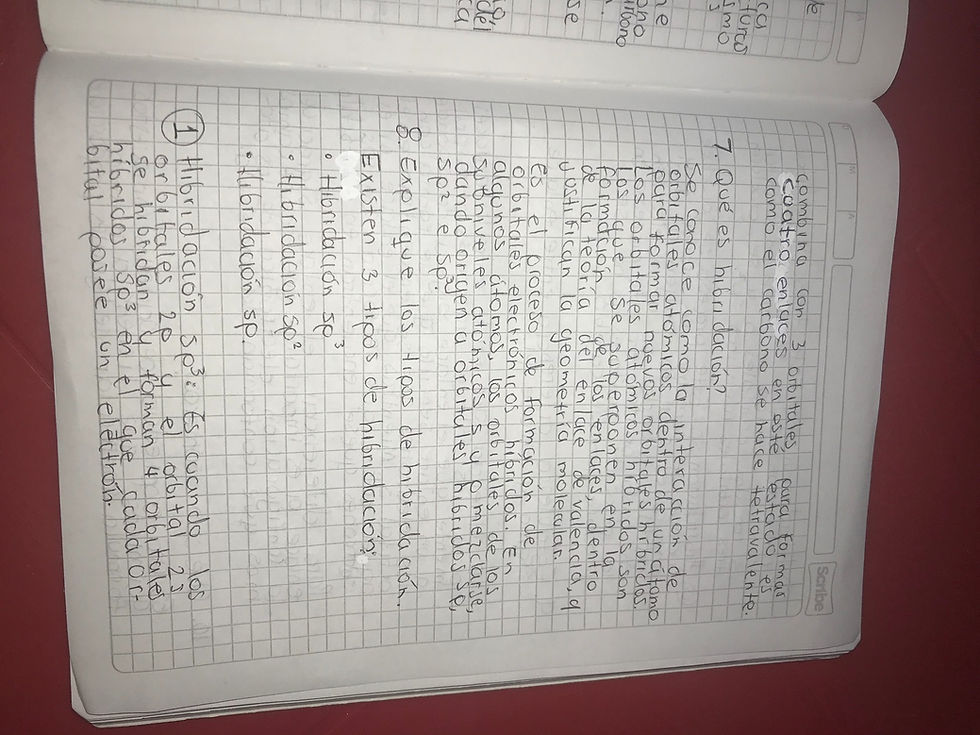 Scribe
combina con 3 orbitales para formas
cuatro enlaces en este estado es
como el carbono se hace tetravalente.
7. Qué es hibridación?
Se conoce como la interacción de
orbitales atómicos dentro de un átomo
para formar nuevos orbitales hibridos
Los orbitales atómicos hibridos son
los que se superponen en la
formación de los enlaces, dentro
de la teoría del enlace de valencia, y
justifican la geometría molecular.
es el proceso de formación de
orbitales electrónicos hibridos. En
algunos átomos, los orbitales de los
subniveles atómicos s y p mezclarse,
dando origen a orbitales hibridos sp,
sp² e sp³.
8. Explique los tipos de hibridación.
Existen 3 tipos de hibridación:
• Hibridación sp³
• Hibridación sp²
• Hibridación sp.
1 Hibridación sp³: Es cuando los
orbitales 2p y el orbital 2s
se hibridan y forman 4 orbitales
hibridos sp³ en el que cada or-
bital posee un electrón.